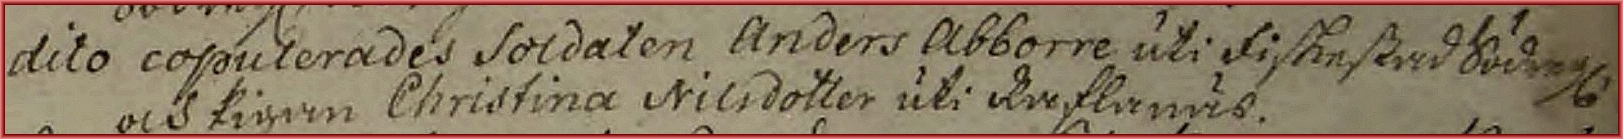 dito copulerades Soldaten Anders Abborre uti Fiskestad Söder
och pigan Christina Nilsdotter uti